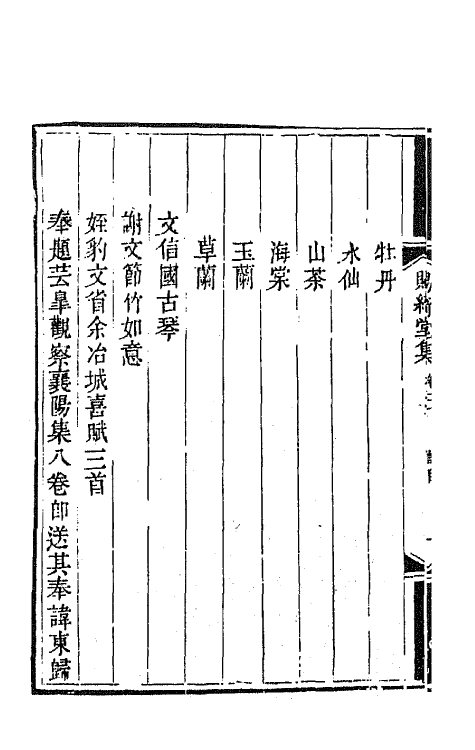 賜綺堂集
牡丹
水仙
山茶
海棠
玉蘭
草蘭
文信國古琴
謝文節竹如意
姪豹文省余冶城喜賦三首
奉題芸臯觀察襄陽集八卷即送其奉諱東歸